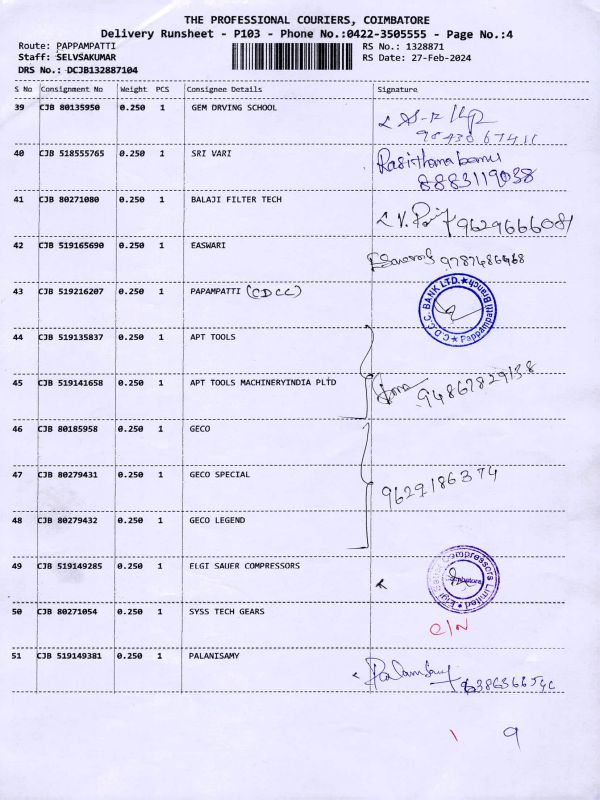 THE PROFESSIONAL COURIERS, COIMBATORE
Delivery Runsheet - P103 - Phone No.:0422-3505555 - Page No.:4
Route: PAPPAMPATTI RS No.: 1328871
Staff: SELVSAKUMAR RS Date: 27-Feb-2024
DRS No.: DCJB132887104
S No Consignment No Weight PCS Consignee Details Signature
39 CJB 80135950 0.250 1 GEM DRVING SCHOOL
40 CJB 518555765 0.250 1 SRI VARI
8883119038
41 CJB 80271080 0.250 1 BALAJI FILTER TECH
9629666081
42 CJB 519165690 0.250 1 EASWARI
9787486468
43 CJB 519216207 0.250 1 PAPAMPATTI (CDCC)
C.D.C.C. BANK LTD. ★ Pappampatti Branch ★
44 CJB 519135837 0.250 1 APT TOOLS
45 CJB 519141658 0.250 1 APT TOOLS MACHINERYINDIA PLTD
94867829138
46 CJB 80185958 0.250 1 GECO
47 CJB 80279431 0.250 1 GECO SPECIAL
9629186374
48 CJB 80279432 0.250 1 GECO LEGEND
49 CJB 519149285 0.250 1 ELGI SAUER COMPRESSORS
Elgi Sauer Compressors Limited ★
50 CJB 80271054 0.250 1 SYSS TECH GEARS
C/N
51 CJB 519149381 0.250 1 PALANISAMY
9